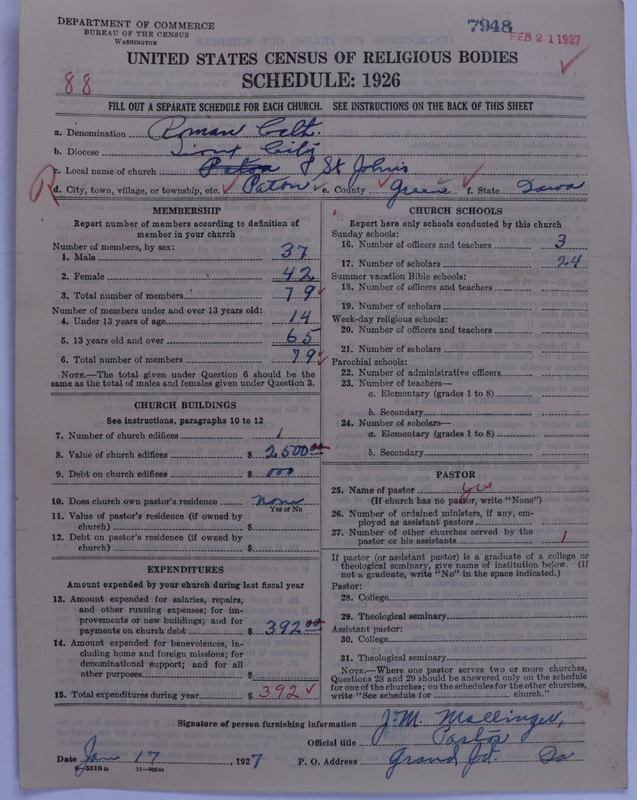 DEPARTMENT OF COMMERCE
BUREAU OF THE CENSUS
WASHINGTON
7948
FEB 21 1927
UNITED STATES CENSUS OF RELIGIOUS BODIES
SCHEDULE: 1926
88
FILL OUT A SEPARATE SCHEDULE FOR EACH CHURCH. SEE INSTRUCTIONS ON THE BACK OF THIS SHEET
a. Denomination Roman Cath.
b. Diocese Sioux City
c. Local name of church Paton St Johns
R d. City, town, village, or township, etc. Paton e. County Green f. State Iowa
MEMBERSHIP
Report number of members according to definition of
member in your church
Number of members, by sex:
1. Male 37
2. Female 42
3. Total number of members 79
Number of members under and over 13 years old:
4. Under 13 years of age 14
5. 13 years old and over 65
6. Total number of members 79
NOTE.—The total given under Question 6 should be the
same as the total of males and females given under Question 3.
CHURCH BUILDINGS
See instructions, paragraphs 10 to 12
7. Number of church edifices 1
8. Value of church edifices $ 2,500 00
9. Debt on church edifices $ 000
10. Does church own pastor's residence none
Yes or No
11. Value of pastor's residence (if owned by
church) $
12. Debt on pastor's residence (if owned by
church) $
EXPENDITURES
Amount expended by your church during last fiscal year
13. Amount expended for salaries, repairs,
and other running expenses; for im-
provements or new buildings; and for
payments on church debt $ 392 00
14. Amount expended for benevolences, in-
cluding home and foreign missions; for
denominational support; and for all
other purposes $
15. Total expenditures during year $ 392
CHURCH SCHOOLS
Report here only schools conducted by this church
Sunday schools:
16. Number of officers and teachers 3
17. Number of scholars 24
Summer vacation Bible schools:
18. Number of officers and teachers
19. Number of scholars
Week-day religious schools:
20. Number of officers and teachers
21. Number of scholars
Parochial schools:
22. Number of administrative officers
23. Number of teachers—
a. Elementary (grades 1 to 8)
b. Secondary
24. Number of scholars—
a. Elementary (grades 1 to 8)
b. Secondary
PASTOR
25. Name of pastor yes
(If church has no pastor, write "None")
26. Number of ordained ministers, if any, em-
ployed as assistant pastors
27. Number of other churches served by the
pastor or his assistants 1
If pastor (or assistant pastor) is a graduate of a college or
theological seminary, give name of institution below. (If
not a graduate, write "No" in the space indicated.)
Pastor:
28. College
29. Theological seminary
Assistant pastor:
30. College
31. Theological seminary
NOTE.—Where one pastor serves two or more churches,
Questions 28 and 29 should be answered only on the schedule
for one of the churches; on the schedules for the other churches,
write "See schedule for church."
Signature of person furnishing information J. M. Mollinger,
Official title Pastor
Date Jan 17, 1927 P. O. Address Grand Jct. Ia
8-5518a 11-90544